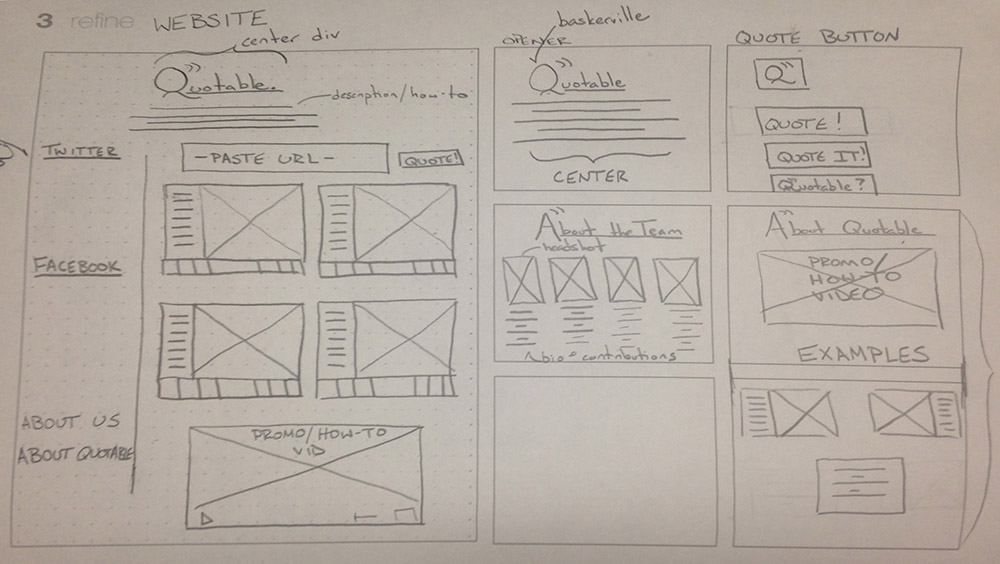 3 refine WEBSITE
center div
Quotable.
description/how-to
TWITTER
-PASTE URL-
QUOTE!
FACEBOOK
ABOUT US
ABOUT QUOTABLE
PROMO/HOW-TO
VID
baskerville
OPENER
Quotable
CENTER
About the Team
headshot
bio + contributions
QUOTE BUTTON
Q"
QUOTE!
QUOTE IT!
Quotable?
About Quotable
PROMO/
HOW-TO
VIDEO
EXAMPLES